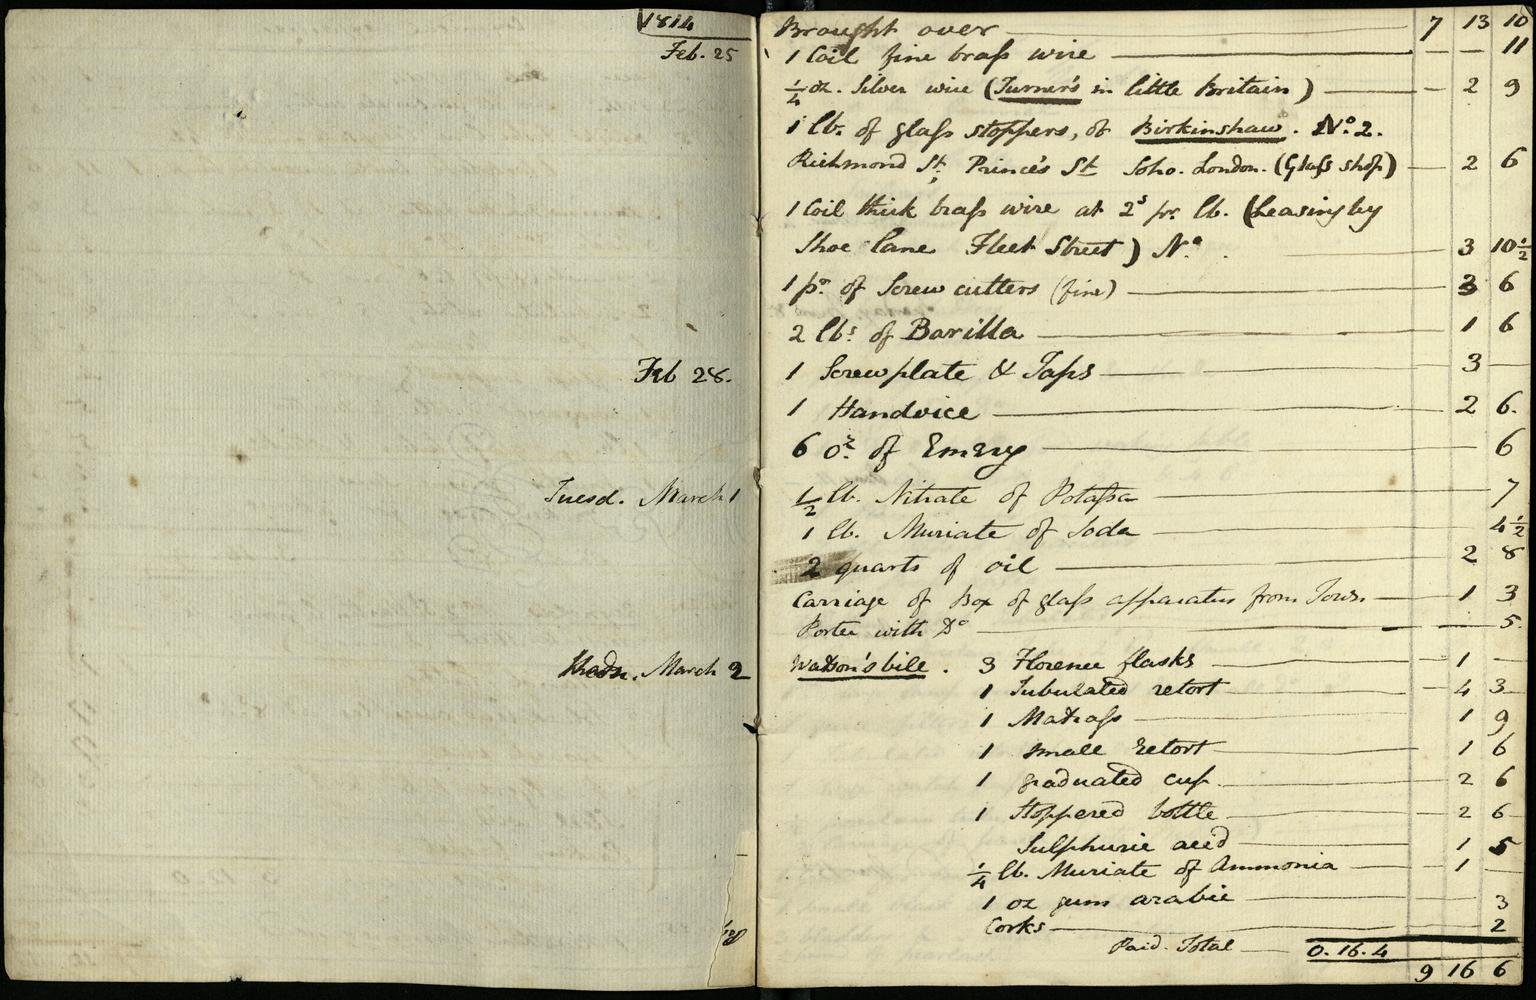 1814
Feb. 25
Brought over 7 13 10
1 Coil fine brass wire 11
1/4 oz. Silver wire (Turner's in little Britain) 2 9
1 lb. of glass stoppers, of Birkinshaw. No. 2.
Richmond St. Prince's St Soho. London. (Glass shop) 2 6
1 Coil thick brass wire at 2s pr. lb. (Leasingby
Shoe lane Fleet Street) No. 3 10 1/2
1 pr. of Screw cutters (fine) 3 6
2 lbs. of Barilla 1 6
Feb 28. 1 Screwplate & Taps 3
1 Handvice 2 6.
6 oz. of Emery 6
Tuesd. March 1 1/2 lb. Nitrate of Potassa 7
1 lb. Muriate of Soda 4 1/2
2 quarts of oil 2 8
Carriage of Box of glass apparatus from Town 1 3
Porter with Do 5.
Wedn. March 2 Watson's bill. 3 Florence flasks 1
1 Tubulated retort 4 3
1 Matrass 1 9
1 small retort 1 6
1 graduated cup. 2 6
1 Stoppered bottle 2 6
Sulphuric acid 1 5
1/4 lb. Muriate of Ammonia 1
1 oz gum arabic 3
Corks 2
Paid. Total 0. 16. 4
9 16 6